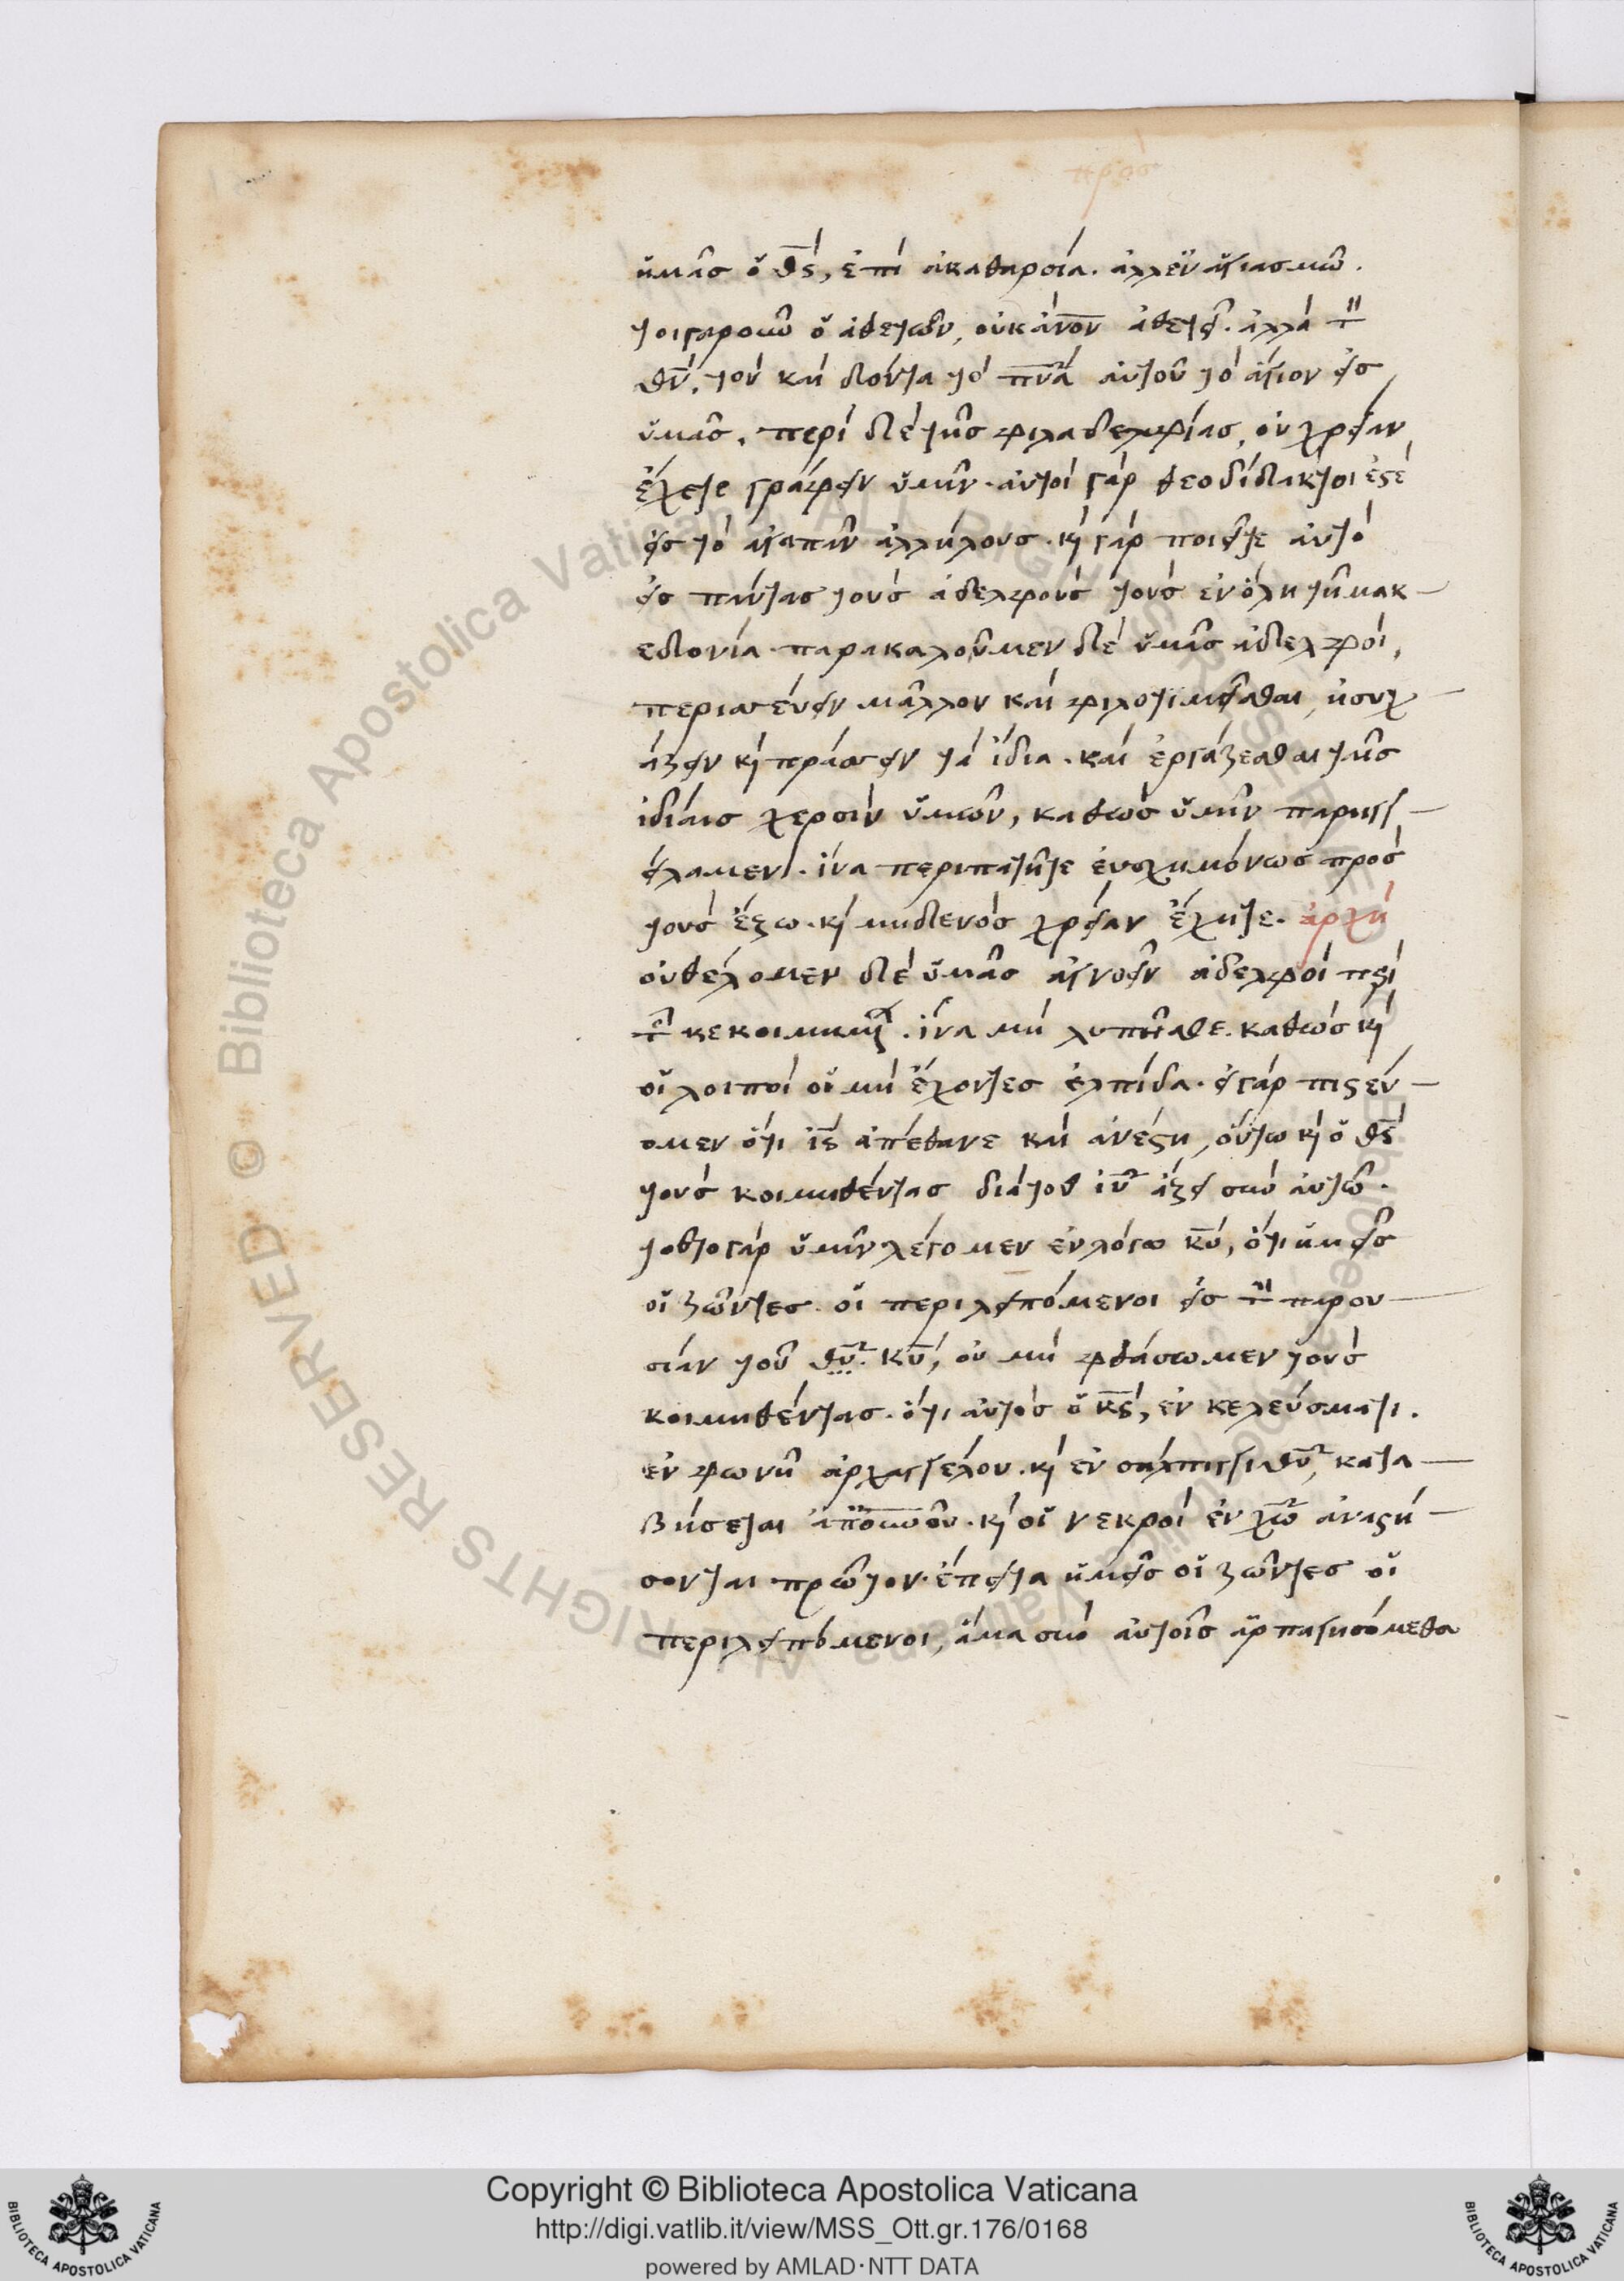 πρὸς
ἡμᾶς ὁ θ̅ς̅, ἐπὶ ἀκαθαρσία. ἀλλ ἐν ἁγιασμῶ.
τοιγαροῦν ὁ ἀθετῶν, οὐκ ἄν̅ο̅ν̅ ἀθετεῖ. ἀλλὰ τὸν
θ̅ν̅, τὸν καὶ δόντα τὸ π̅ν̅α̅ αὐτοῦ τὸ ἅγιον εἰς
ὑμᾶς. περὶ δὲ τῆς φιλαδελφίας, οὐ χρείαν
ἔχετε γράφειν ὑμῖν. αὐτοὶ γὰρ θεοδίδακτοί ἐστὲ
εἰς τὸ ἀγαπᾶν ἀλλήλους. κ̀ γὰρ ποιεῖτε αὐτὸ
εἰς πάντας τοὺς ἀδελφοὺς τοὺς ἐν ὅλη τῆ μακ
εδονία. παρακαλοῦμεν δὲ ὑμᾶς ἀδελφοὶ,
περισσεύειν μᾶλλον καὶ φιλοτιμεῖσθαι, ἡσυχ
άζειν κ̀ πράσσειν τὰ ἴδια. καὶ ἐργάζεσθαι τῆς
ἰδίαις χερσὶν ὑμῶν, καθὼς ὑμῖν παρηγγ
είλαμεν. ἵνα περιπατῆτε εὐσχημόνως πρὸς
τοὺς ἔξω. κ̀ μηδενὸς χρείαν ἔχητε. ἀρχὴ
οὐ θέλομεν δὲ ὑμᾶς ἀγνοεῖν ἀδελφοὶ περὶ
τῶν κεκοιμημένων. ἵνα μὴ λυπῆσθε. καθὼς κ̀
οἱ λοιποὶ οἱ μὴ ἔχοντες ἐλπίδα. εἰ γὰρ πιστεύ
ομεν ὅτι ι̅ς̅ ἀπέθανε καὶ ἀνέστη, οὕτω κ̀ ὁ θ̅ς̅
τοὺς κοιμηθέντας διὰ τοῦ ι̅υ̅ ἄξει σὺν αὐτῶ.
τοῦτο γὰρ ὑμῖν λέγομεν ἐν λόγω κ̅υ̅, ὅτι ἡμεῖς
οἱ ζῶντες. οἱ περιλειπόμενοι εἰς τὴν παρου
σίαν τοῦ θ̅υ̅. κ̅υ̅, οὐ μὴ φθάσωμεν τοὺς
κοιμηθέντας. ὅτι αὐτὸς ὁ κ̅ς̅, ἐν κελεύσματι.
ἐν φωνῆ ἀρχαγγέλου. κ̀ ἐν σάλπιγγι θ̅υ̅, κατα
βήσεται ἀπ ο̅υ̅ν̅ο̅υ̅. κ̀ οἱ νεκροὶ ἐν χ̅ω̅ ἀναστή
σονται πρῶτον. ἔπειτα ἡμεῖς οἱ ζῶντες οἱ
περιλειπόμενοι, ἅμα σὺν αὐτοῖς ἁρπαγησόμεθα
Copyright © Biblioteca Apostolica Vaticana
http://digi.vatlib.it/view/MSS_Ott.gr.176/0168
powered by AMLAD·NTT DATA